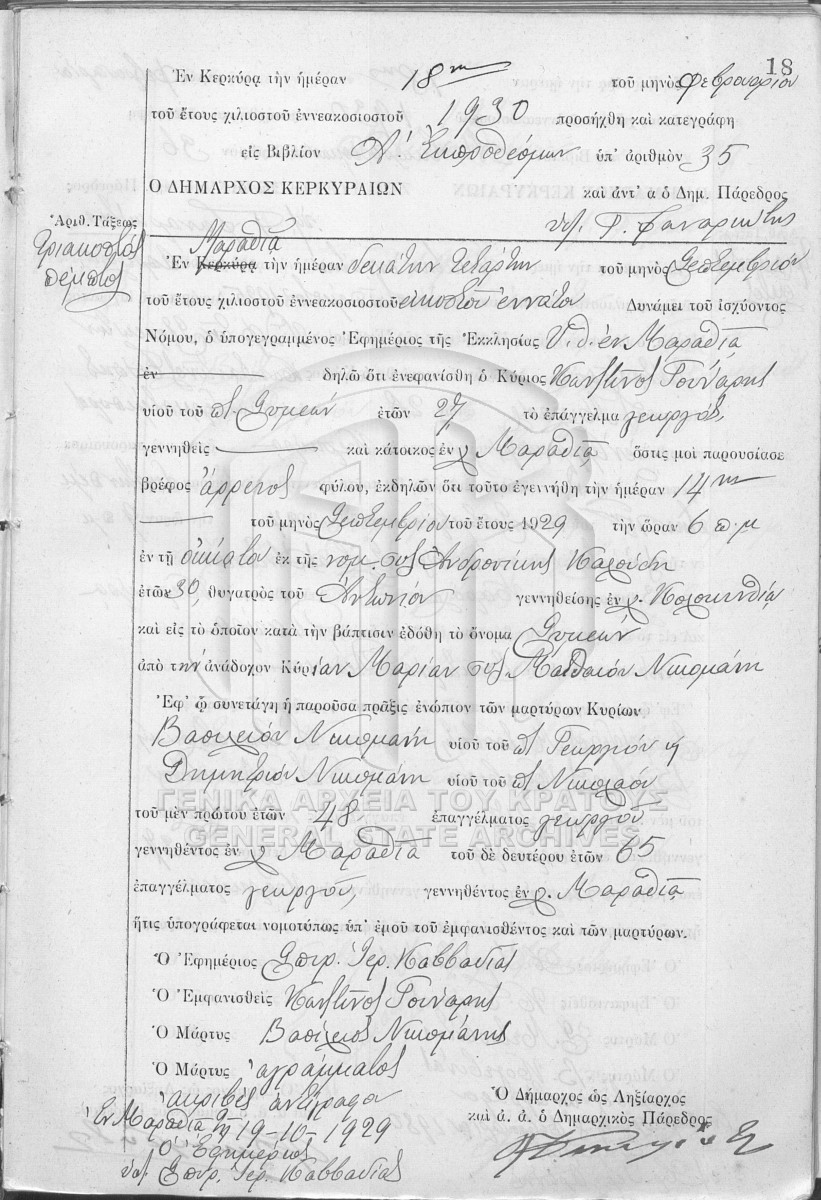 18
Ἐν Κερκύρᾳ τὴν ἡμέραν 18ην τοῦ μηνὸς Φεβρουαρίου
τοῦ ἔτους χιλιοστοῦ ἐννεακοσιοστοῦ 1930 προσήχθη καὶ κατεγράφη
εἰς Βιβλίον Α΄. Ἐκπροθέσμων ὑπ' ἀριθμὸν 35
Ο ΔΗΜΑΡΧΟΣ ΚΕΡΚΥΡΑΙΩΝ καὶ ἀντ' α ὁ Δημ. Πάρεδρος
Ἀριθ. Τάξεως
Τριακοστὸς πέμπτος
Μαραθιᾷ
Ἐν Κερκύρᾳ τὴν ἡμέραν δεκάτην τετάρτην τοῦ μηνὸς Σεπτεμβρίου
τοῦ ἔτους χιλιοστοῦ ἐννεακοσιοστοῦ εἰκοστοῦ ἐννάτου Δυνάμει τοῦ ἰσχύοντος
Νόμου, ὁ ὑπογεγραμμένος Ἐφημέριος τῆς Ἐκκλησίας Υ.Θ. ἐν Μαραθιᾷ
ἐν δηλῶ ὅτι ἐνεφανίσθη ὁ Κύριος Κων/τῖνος Γούναρης
υἱοῦ τοῦ Συμεών ἐτῶν 27 τὸ ἐπάγγελμα γεωργός,
γεννηθεὶς καὶ κάτοικος ἐν χ. Μαραθιᾷ ὅστις μοὶ παρουσίασε
βρέφος ἄρρενος φύλου, ἐκδηλῶν ὅτι τοῦτο ἐγεννήθη τὴν ἡμέραν 14ην
τοῦ μηνὸς Σεπτεμβρίου τοῦ ἔτους 1929 τὴν ὥραν 6 π.μ
ἐν τῇ οἰκίᾳ του ἐκ τῆς νομ. συζ Ἀνδρονίκης Καλούδη
ἐτῶν 30, θυγατρὸς τοῦ Ἀντωνίου γεννηθείσης ἐν χ.
καὶ εἰς τὸ ὁποῖον κατὰ τὴν βάπτισιν ἐδόθη τὸ ὄνομα Συμεών
ἀπὸ τὴν ἀνάδοχον Κυρίαν Μαρίαν συζ Ματθαίου Νικομάνη
Ἐφ' ᾧ συνετάγη ἡ παροῦσα πρᾶξις ἐνώπιον τῶν μαρτύρων Κυρίων
Βασιλείου Νικομάνη υἱοῦ τοῦ Γεωργίου
Δημητρίου Νικομάνη υἱοῦ τοῦ Νικολάου
ΓΕΝΙΚΑ ΑΡΧΕΙΑ ΤΟΥ ΚΡΑΤΟΥΣ
τοῦ μὲν πρώτου ἐτῶν 48 ἐπαγγέλματος γεωργοῦ
GENERAL STATE ARCHIVES
γεννηθέντος ἐν χ Μαραθιᾷ τοῦ δὲ δευτέρου ἐτῶν 65
ἐπαγγέλματος γεωργοῦ, γεννηθέντος ἐν χ. Μαραθιᾷ,
ἥτις ὑπογράφεται νομοτύπως ὑπ' ἐμοῦ τοῦ ἐμφανισθέντος καὶ τῶν μαρτύρων.
Ὁ Ἐφημέριος Σπυρ. Ἱερ. Καββαδίας
Ὁ Ἐμφανισθεὶς Κων/τῖνος Γούναρης
Ὁ Μάρτυς Βασίλειος Νικομάνης
Ὁ Μάρτυς ἀγράμματος
ἀκριβὲς ἀντίγραφον
Ἐν Μαραθιᾷ τῇ 19-10-1929
Ὁ Ἐφημέριος
Σπυρ. Ἱερ. Καββαδίας
Ὁ Δήμαρχος ὡς Ληξίαρχος
καὶ ἀ. ἀ. ὁ Δημαρχικὸς Πάρεδρος